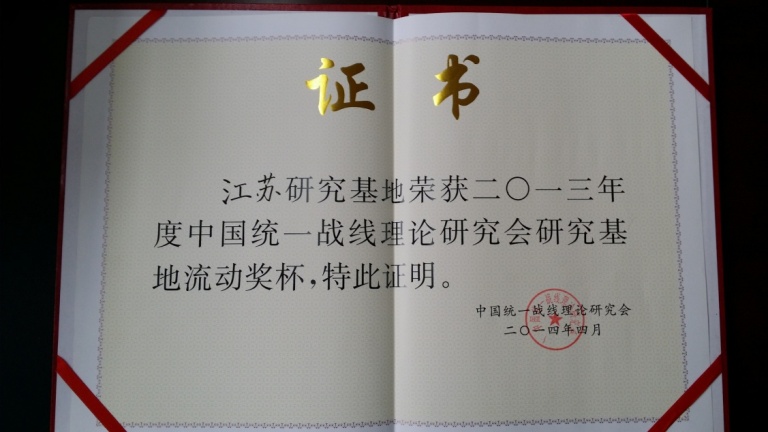 证书
江苏研究基地荣获二〇一三年
度中国统一战线理论研究会研究基
地流动奖杯，特此证明。
中国统一战线理论研究会
二〇一四年四月